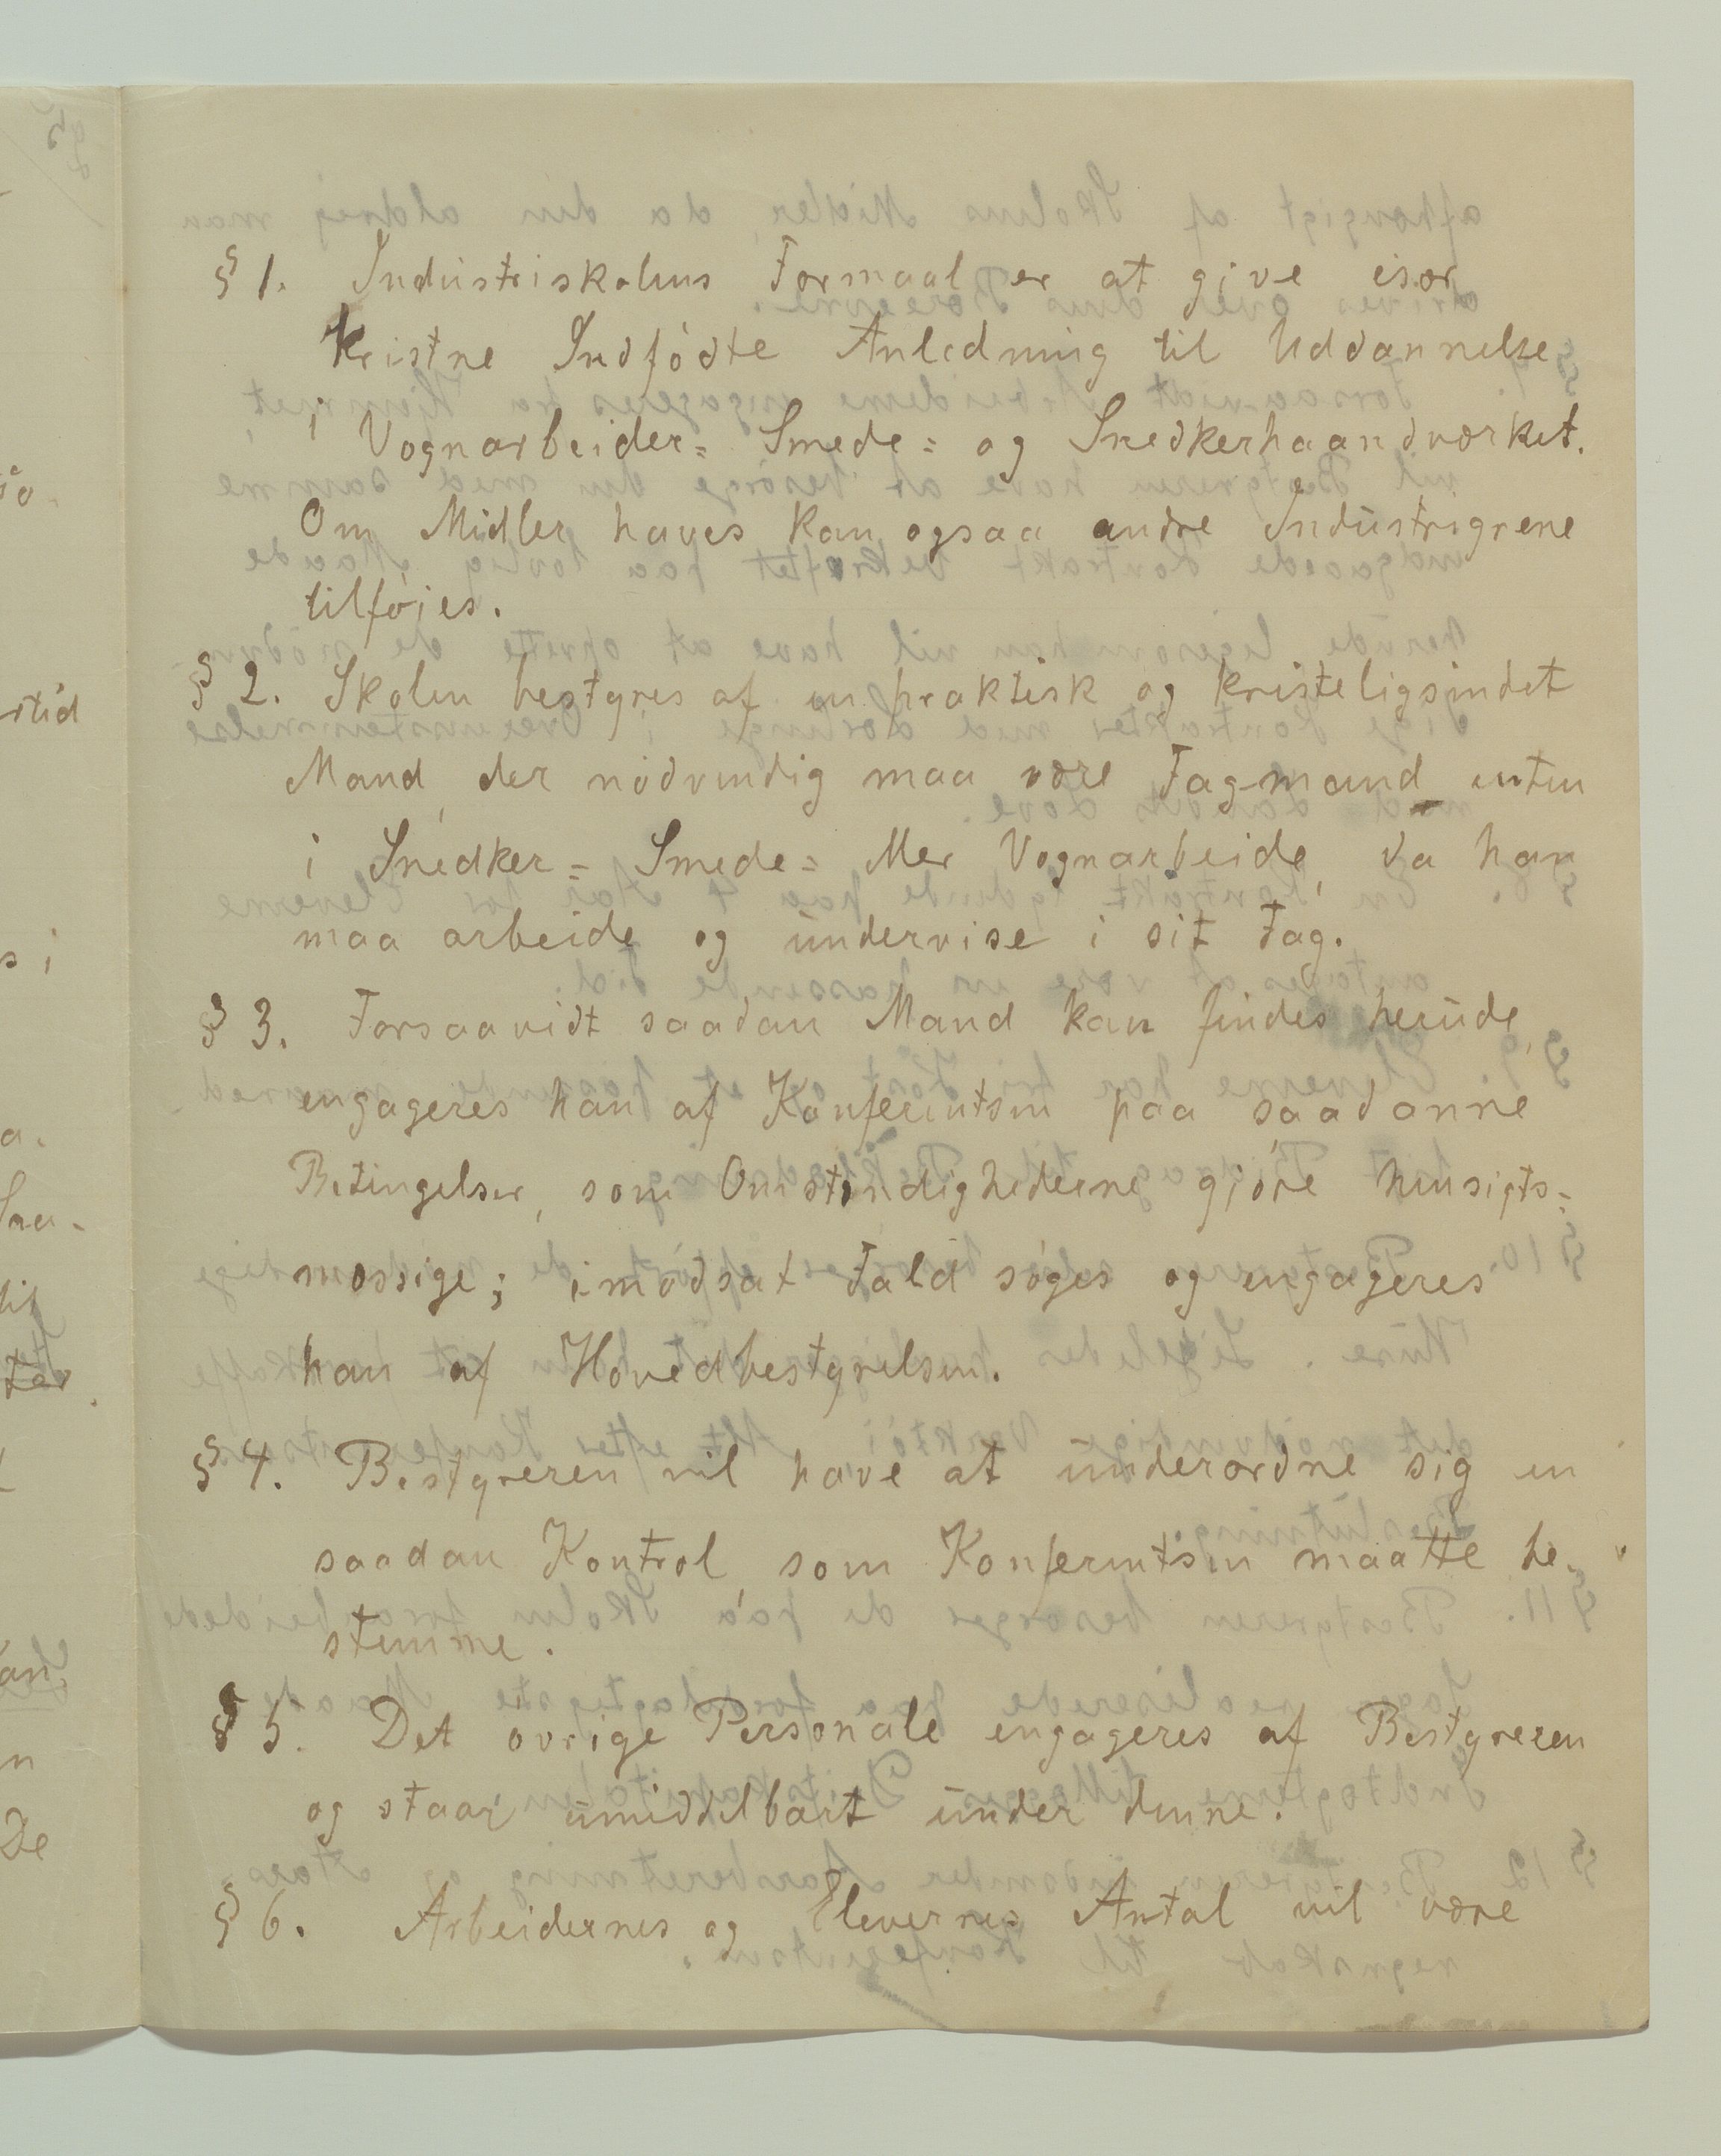 § 1. Industriskolens Formaal er at give især
Kristne Indfödte Anledning til Uddannelse
i Vognarbeider= Smede= og Snedkerhaandværket.
Om Midler haves kan ogsaa andre Industrigrene
tilföies.
§ 2. Skolen bestyres af en praktisk og kristeligsindet
Mand, der nödvendig maa være Fagmand enten
i Snedker= Smede= eller Vognarbeide, da han
maa arbeide og undervise i sit Fag.
§ 3. Forsaavidt saadan Mand kan findes herude,
engageres han af Konferentsen paa saadanne
Betingelser, som Omstændighederne gjöre hensigts=
mæssige; i modsat Fald söges og engageres
han af Hovedbestyrelsen.
§ 4. Bestyreren vil have at underordne sig en
saadan Kontrol, som Konferentsen maatte be-
stemme.
§ 5. Det övrige Personale engageres af Bestyreren
og staar umiddelbart under denne.
§ 6. Arbeidernes og Elevernes Antal vil være